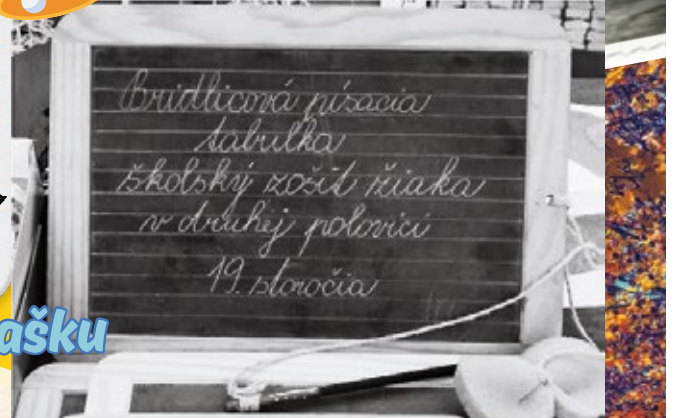 Bridlicová písacia
tabuľka
školský zošit žiaka
v druhej polovici
19. storočia
ašku